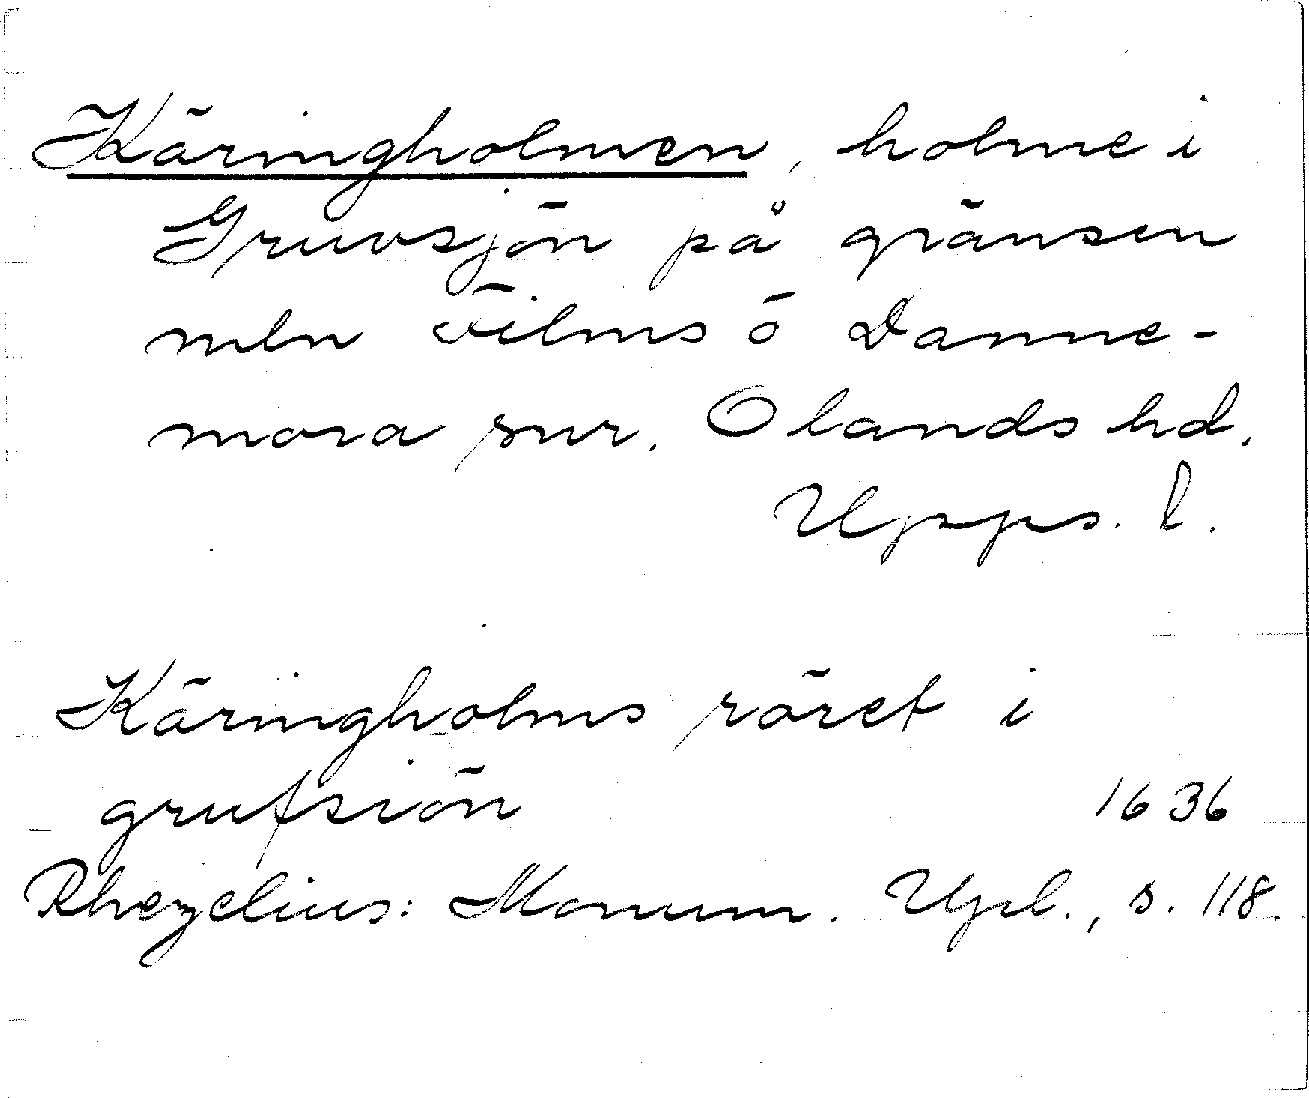 Käringholmen, holme i
Gruvsjön på gränsen
mln Films o Danne-
mora snr. Olands hd.
Upps. l.
Käringholms röret i
grufsiön 1636
Rhezelius: Monum. Upl., s. 118.